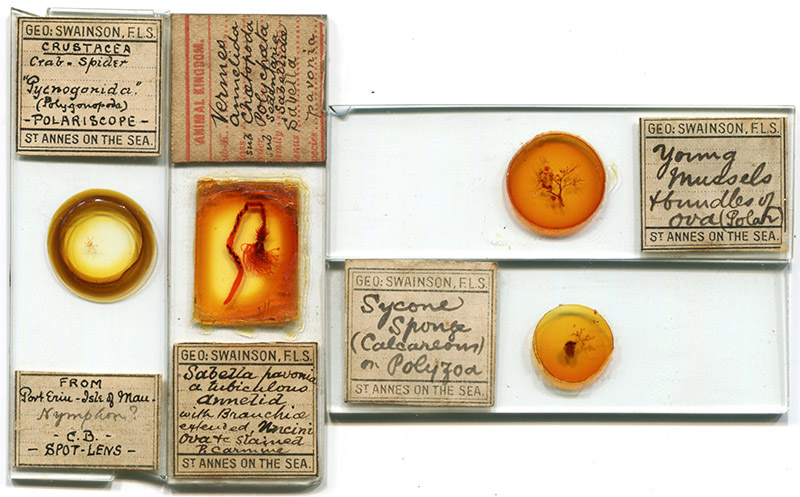 GEO: SWAINSON, F.L.S.
CRUSTACEA
Crab - Spider
"Pycnogonida."
(Polygonopoda)
- POLARISCOPE -
ST ANNES ON THE SEA.
FROM
Port Erin - Isle of Man.
Nymphon?
- C.B. -
- SPOT-LENS -
ANIMAL KINGDOM.
Vermes
annelida
Chætopoda
sub Polychæta
sub sedentaria
Sabellida
Sabella
pavonia
GEO: SWAINSON, F.L.S.
Sabella pavonia
a tubiculous
annelid
with Branchiæ
extended, Uncini
Ova &c stained
B. Carmine
ST ANNES ON THE SEA.
GEO: SWAINSON, F.L.S.
Young
Mussels
& bundles of
ova (Polar)
ST ANNES ON THE SEA.
GEO: SWAINSON, F.L.S.
Sycone
Sponge
(Calcareous)
on Polyzoa
ST ANNES ON THE SEA.